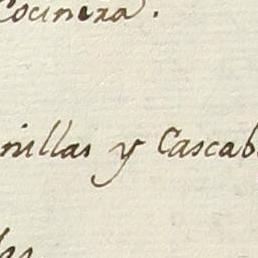 Cocinera.
nillas y Cascab